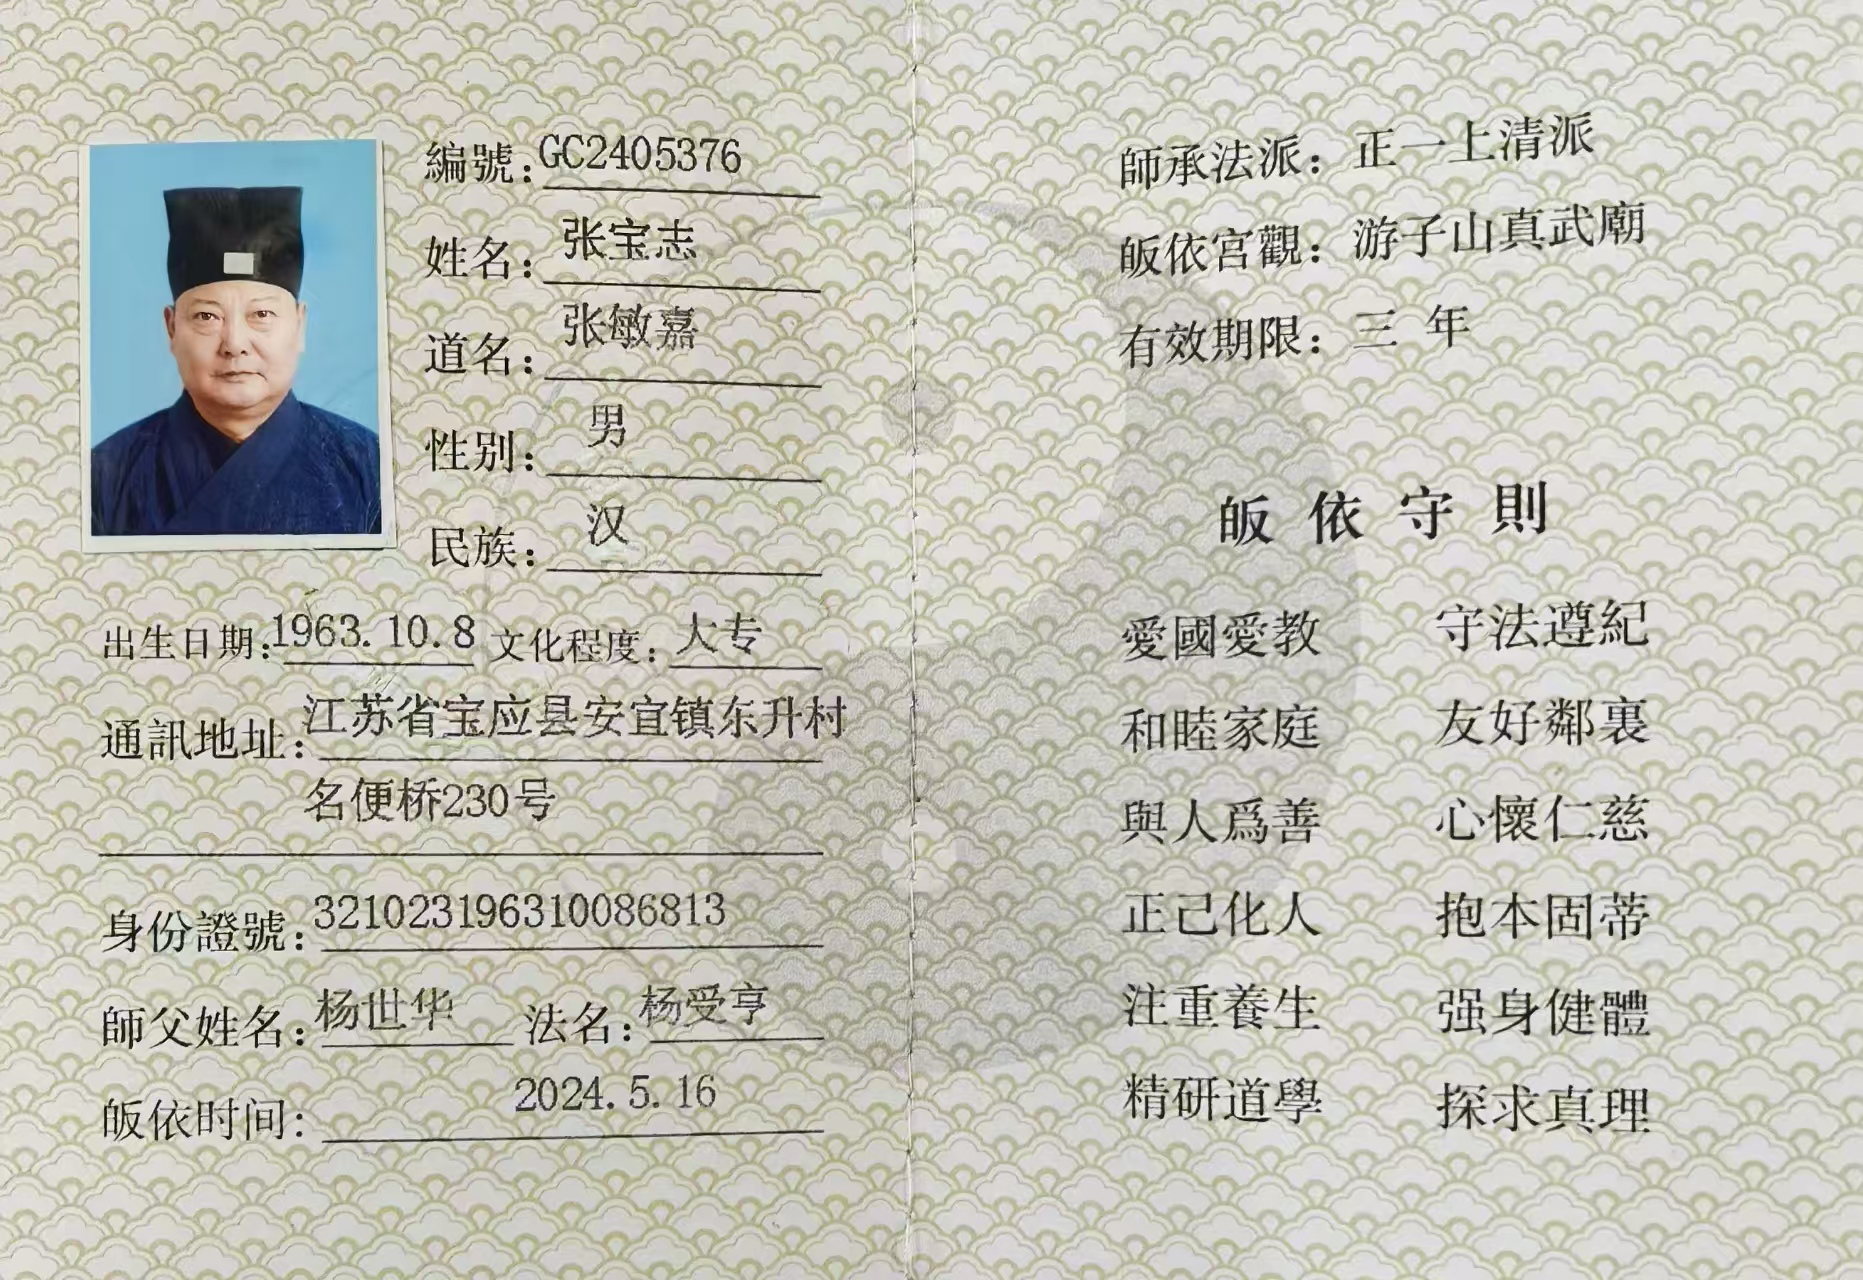 編號:GC2405376
姓名:张宝志
道名:张敏嘉
性别:男
民族:汉
出生日期:1963.10.8 文化程度:大专
通訊地址:江苏省宝应县安宜镇东升村
名便桥230号
身份證號:321023196310086813
師父姓名:杨世华 法名:杨受亨
皈依时间:2024.5.16
師承法派:正一上清派
皈依宮觀:游子山真武廟
有效期限:三 年
皈依守則
愛國愛教 守法遵紀
和睦家庭 友好鄰裏
與人爲善 心懷仁慈
正己化人 抱本固蒂
注重養生 强身健體
精研道學 探求真理